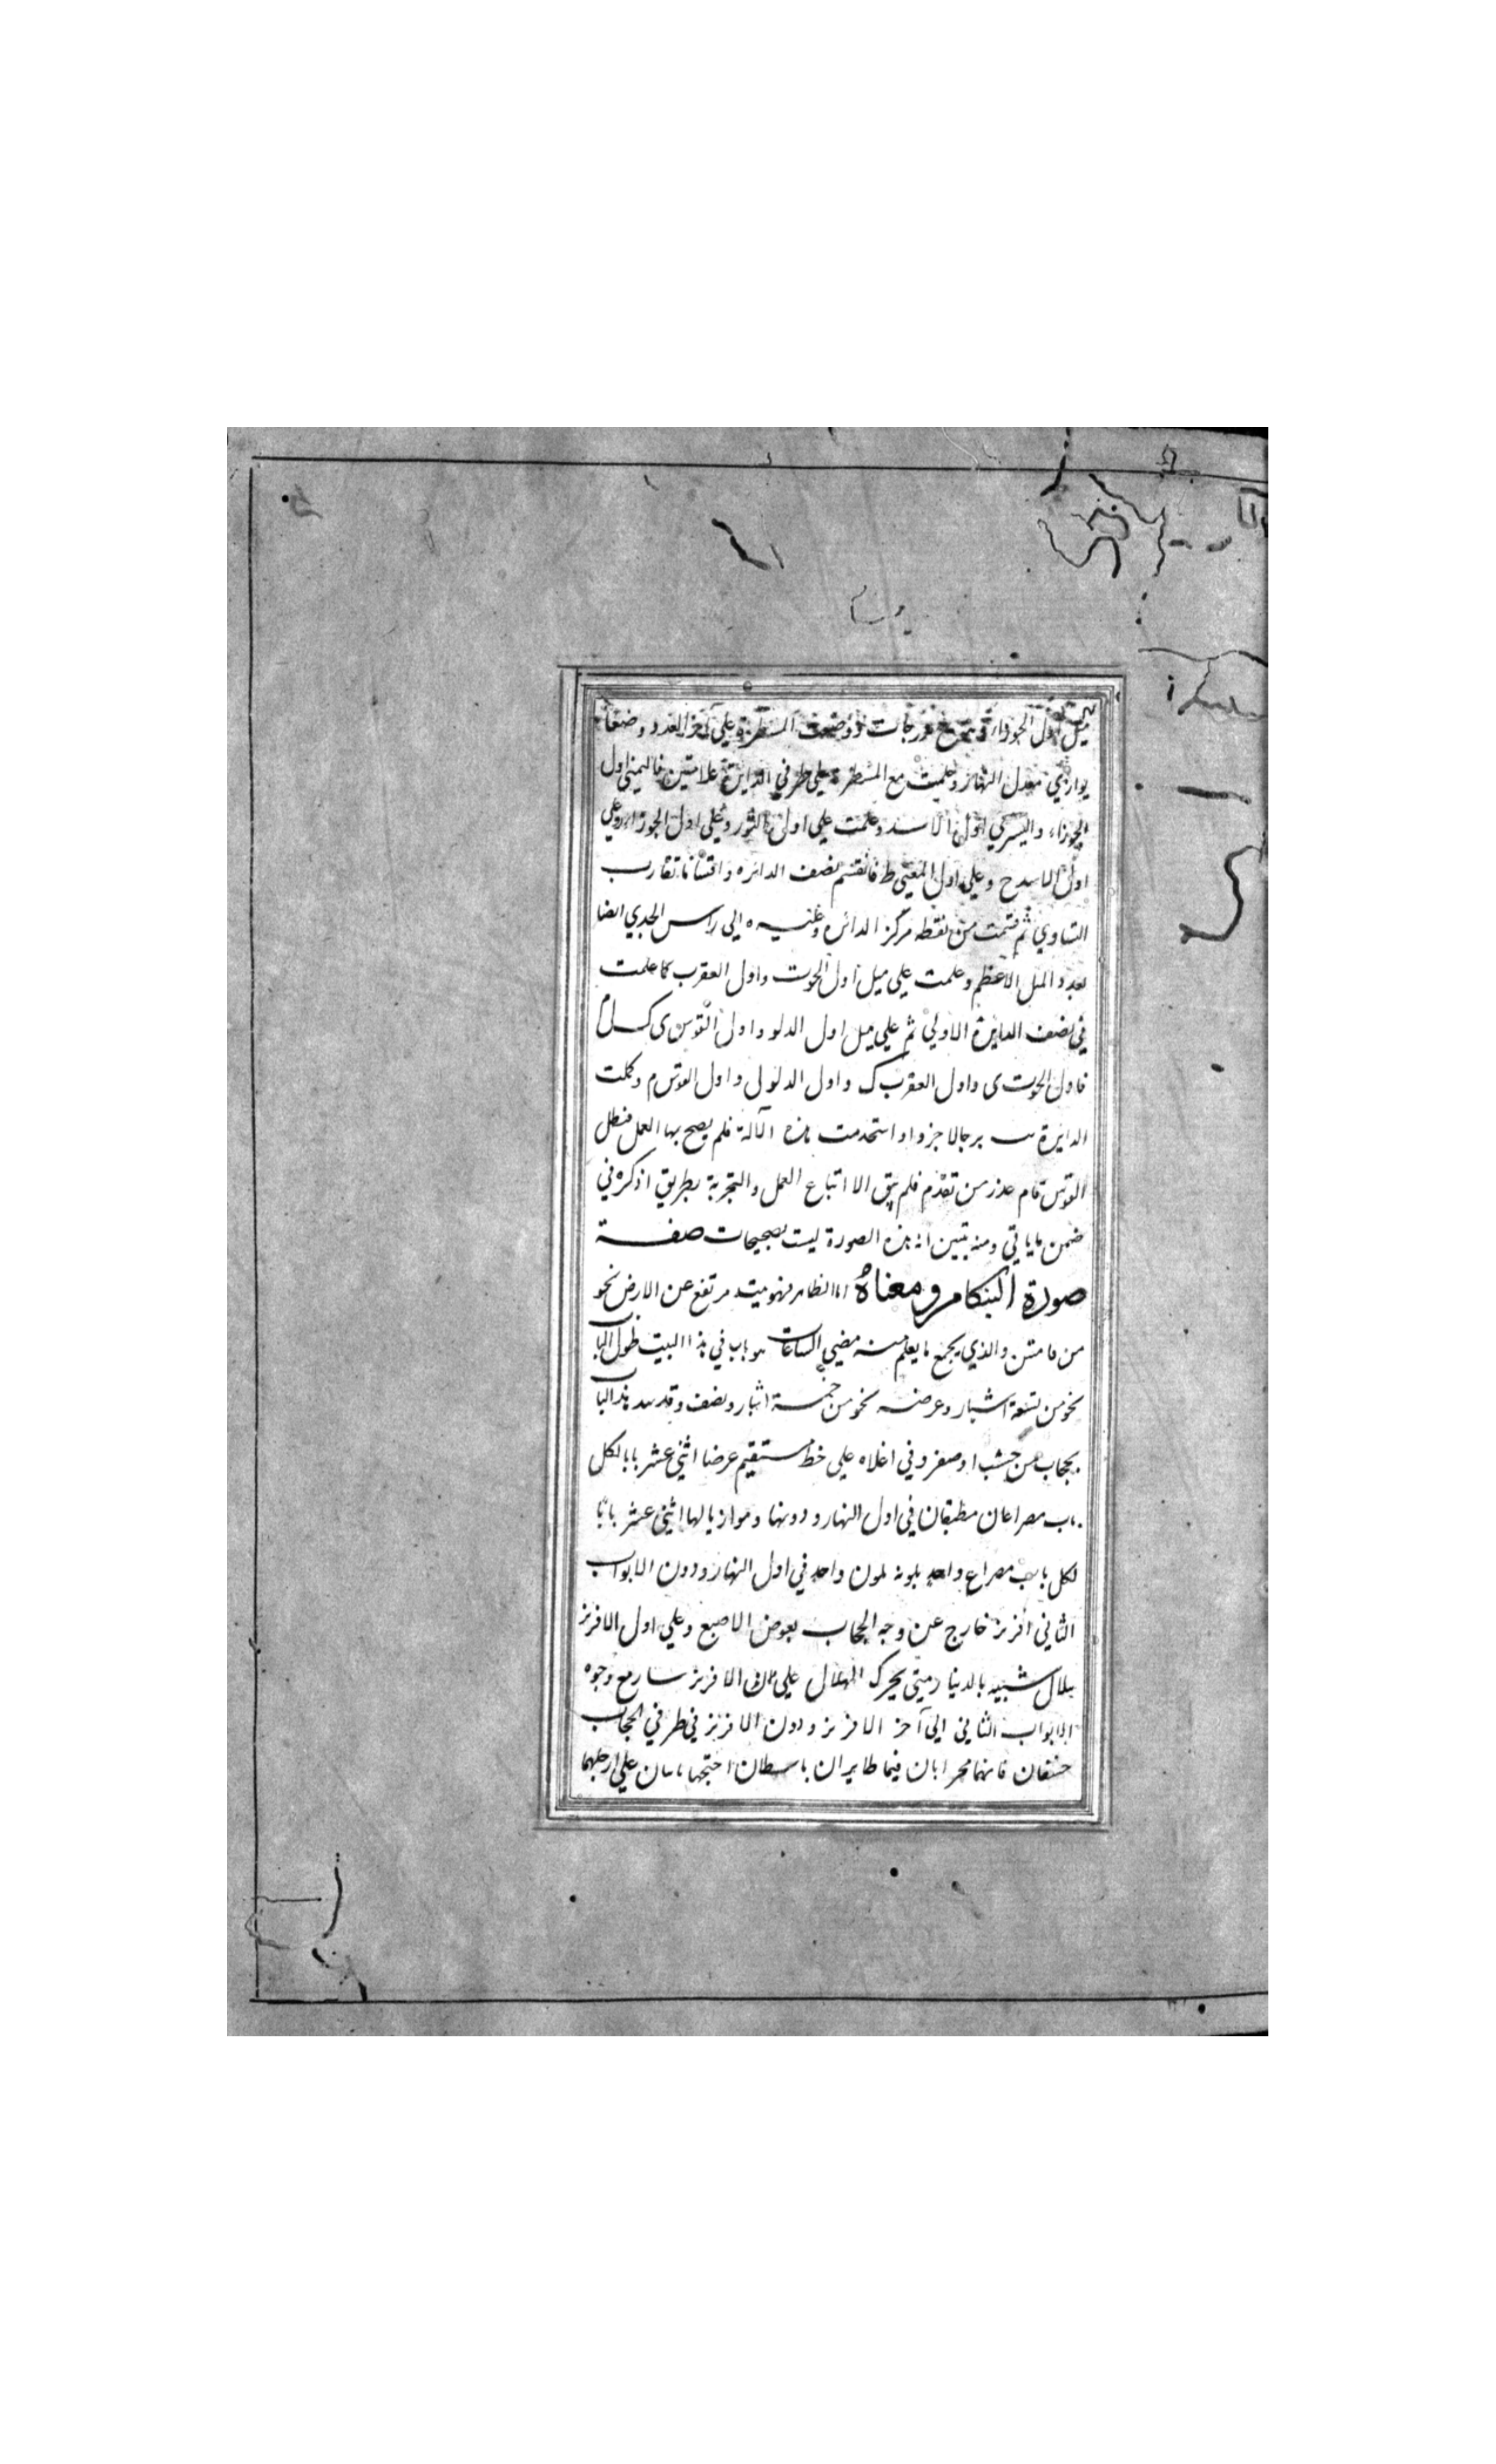 ميل اول الجوزاء درجات ووضعت المسطرة علي آخر العدد وضعا
يوازي معدل النهار وعلمت مع المسطرة علي طرفي الدايرة علامتين فاليمني اول
الجوزاء واليسري اول الاسد وعلمت علي اول الثور وعلي اول الجوزاء وعلي
اول الاسد ح وعلي اول ط فانقسم نصف الدائره واقسامها تقارب
التساوي ثم قسمت من نقطه مركز الدائره الي راس الجدي ايضا
بعدد الميل الاعظم وعلمت علي ميل اول الحوت واول العقرب كما علمت
في نصف الدايرة الاولي ثم علي ميل اول الدلو واول القوس ى ك ل م
فاول الحوت ى واول العقرب ك واول الدلو ل واول القوس م وكملت
الدايرة برجا لا جزوا واستخدمت هذه الآلة فلم يصح بها العمل فبطل
القوس قام عذر من تقدم فلم يبق الا اتباع العمل والتجربة بطريق اذكره في
ضمن ما ياتي ومنه يتبين ان هذه الصورة ليست بصحيحات صفــة
صورة البنكام ومعناه اما الظاهر فهو بيت مرتفع عن الارض نحو
من قامتين والذي يجمع ما يعلم منه مضي الساعات هو باب في هذا البيت طول الباب
نحو من تسعة اشبار وعرضه نحو من خمسة اشبار ونصف وقد سد هذا الباب
بحجاب من خشب او صفر وفي اعلاه علي خط مستقيم عرضا اثني عشر بابا لكل
باب مصراعان مطبقان في اول النهار ودونها وموازيا لها اثني عشر بابا
لكل باب مصراع واحد بلونه بلون واحد في اول النهار ودون الابواب
الثاني افريز خارج عن وجه الحجاب بعرض الاصبع وعلي اول الافريز
هلال شبيه بالدينار ومتي يحرك الهلال علي الافريز سار مع وجوه
الابواب الثاني الي آخر الافريز ودون الافريز في طرفي الحجاب
خنقان كانهما محرابان فيهما طايران باسطان اجنحتهما علي ارجلهما